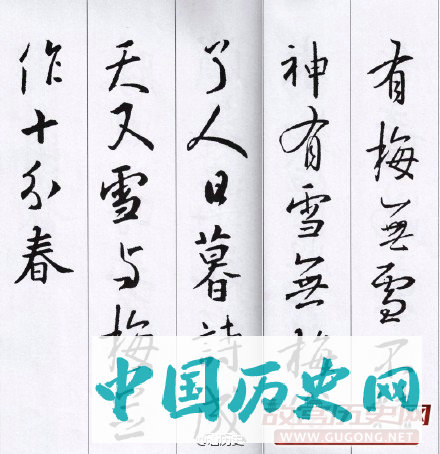 有梅無雪
神有雪無
了人日暮詩成
天又雪与梅
作十分春
中国历史网
故宫历史网
WWW.GUGONG.NET